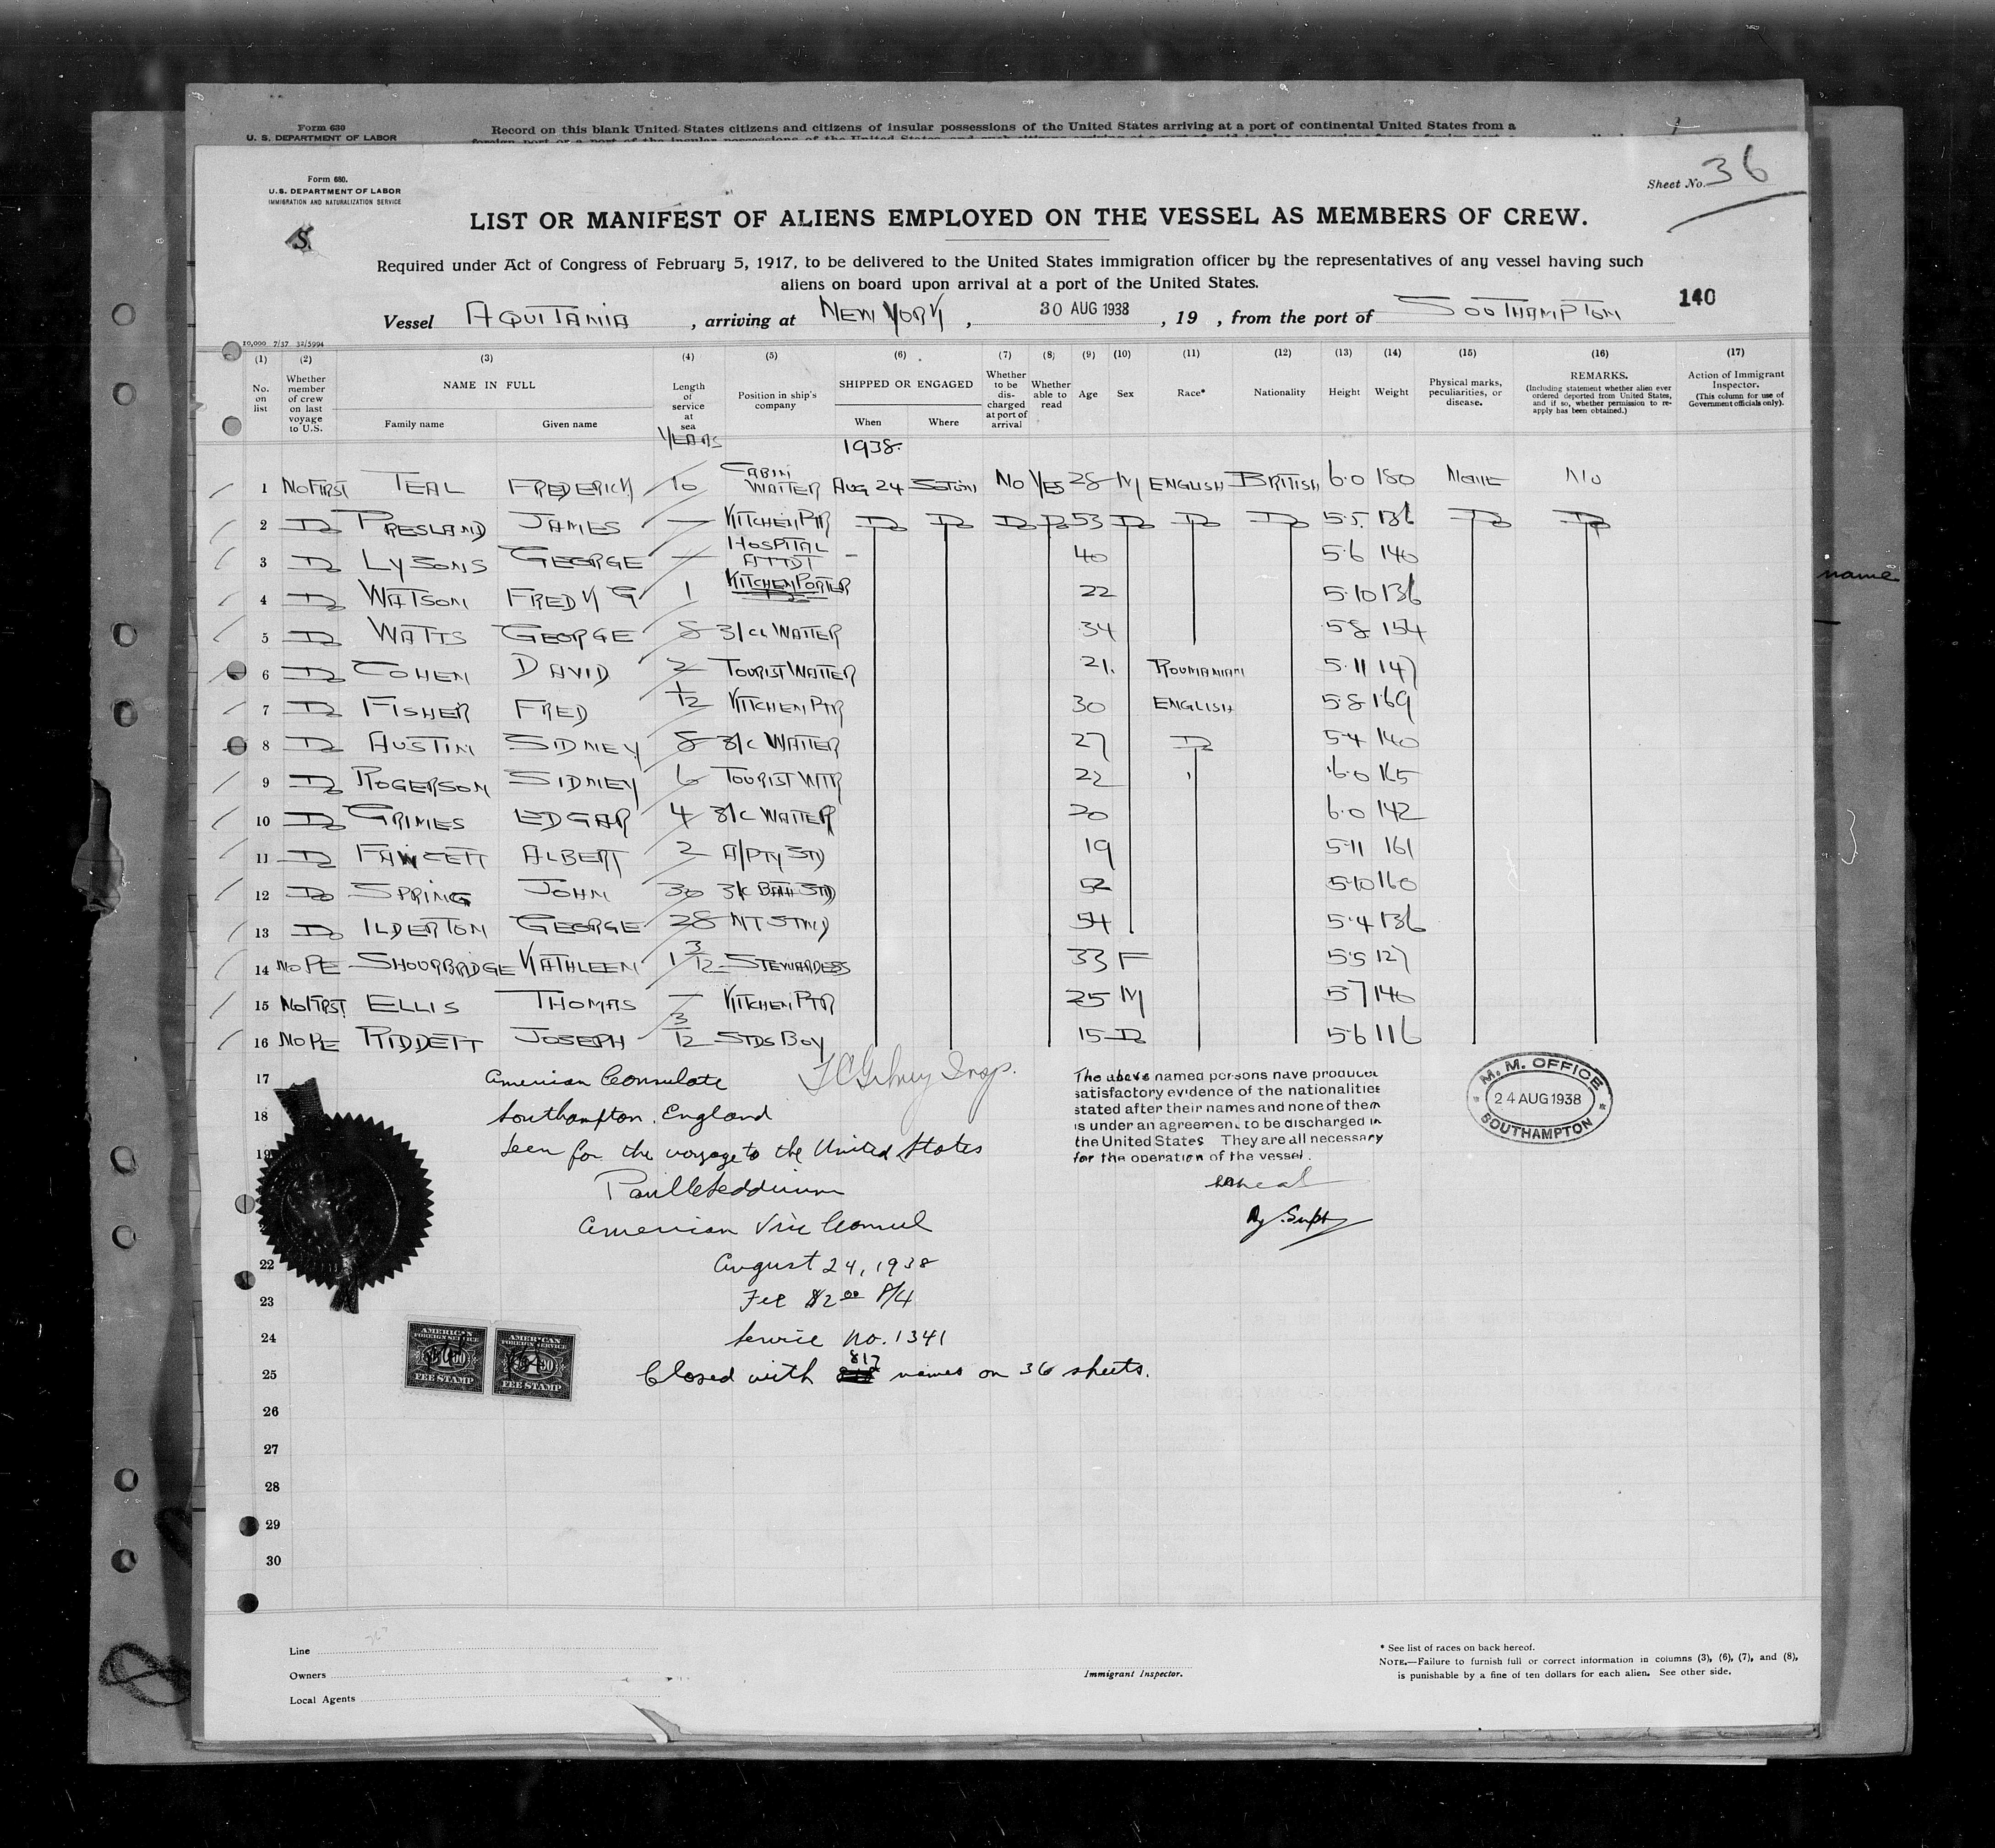 Form 630
U. S. DEPARTMENT OF LABOR
Record on this blank United States citizens and citizens of insular possessions of the United States arriving at a port of continental United States from a
Form 680.
U.S. DEPARTMENT OF LABOR
IMMIGRATION AND NATURALIZATION SERVICE
S.
Sheet No. 36
LIST OR MANIFEST OF ALIENS EMPLOYED ON THE VESSEL AS MEMBERS OF CREW.
Required under Act of Congress of February 5, 1917, to be delivered to the United States immigration officer by the representatives of any vessel having such
aliens on board upon arrival at a port of the United States.
140
Vessel AQUITANIA, arriving at NEW YORK, 30 AUG 1938, 19 , from the port of SOUTHAMPTON
10,000 7/37 32/5994
(1) (2) (3) (4) (5) (6) (7) (8) (9) (10) (11) (12) (13) (14) (15) (16) (17)
No. on list
Whether member of crew on last voyage to U.S.
NAME IN FULL
Family name Given name
Length of service at sea
YEARS
Position in ship's company
SHIPPED OR ENGAGED
When Where
1938.
Whether to be discharged at port of arrival
Whether able to read
Age
Sex
Race*
Nationality
Height
Weight
Physical marks, peculiarities, or disease.
REMARKS.
(Including statement whether alien ever ordered deported from United States, and if so, whether permission to reapply has been obtained.)
Action of Immigrant Inspector.
(This column for use of Government officials only).
1 NO FIRST TEAL FREDERICK 10 CABIN WAITER AUG 24 SOTON NO YES 28 M ENGLISH BRITISH 6.0 180 NONE NO
2 DO PRESLAND JAMES — KITCHEN PTR DO DO DO DO 53 DO DO DO 5.5. 136 DO DO
3 DO LYSONS GEORGE — HOSPITAL ATTDT - 40 5.6 140
4 DO WATSON FREDK G 1 KITCHEN PORTER 22 5.10 136
5 DO WATTS GEORGE 8 3/CL WAITER 34 5.8 154
6 DO COHEN DAVID 2 TOURIST WAITER 21. ROUMANIAN 5.11 147
7 DO FISHER FRED 1/12 KITCHEN PTR 30 ENGLISH 5.8 169
8 DO AUSTIN SIDNEY 8 3/C WAITER 27 DO 5.4 140
9 DO ROGERSON SIDNEY 6 TOURIST WTR 22 6.0 165
10 DO GRIMES EDGAR 4 3/C WAITER 20 6.0 142
11 DO FAWCETT ALBERT 2 A/PTY STD 19 5.11 161
12 DO SPRING JOHN 30 3/C BATH STD 52 5.10 160
13 DO ILDERTON GEORGE 28 NT STWD 54 5.4 136
14 NO PE SHOURBRIDGE KATHLEEN 1 3/12 STEWARDESS 33 F 5.5 127
15 NO FIRST ELLIS THOMAS — KITCHEN PTR 25 M 5.7 140
16 NO PE RIDDETT JOSEPH 3/12 STDS BOY 15 DO 5.6 116
17 American Consulate
18 Southampton, England
19 Seen for the voyage to the United States
American Vice Consul
22 August 24, 1938
23 Fee $2.00
24 Service No. 1341
25 Closed with 817 names on 36 sheets.
26
27
28
29
30
The above named persons have produced
satisfactory evidence of the nationalities
stated after their names and none of them
is under an agreement to be discharged in
the United States They are all necessary
for the operation of the vessel.
M. M. OFFICE
24 AUG 1938
SOUTHAMPTON
AMERICAN
FOREIGN SERVICE
FEE STAMP
AMERICAN
FOREIGN SERVICE
FEE STAMP
name
Line
Owners
Local Agents
Immigrant Inspector.
* See list of races on back hereof.
NOTE.—Failure to furnish full or correct information in columns (3), (6), (7), and (8),
is punishable by a fine of ten dollars for each alien. See other side.